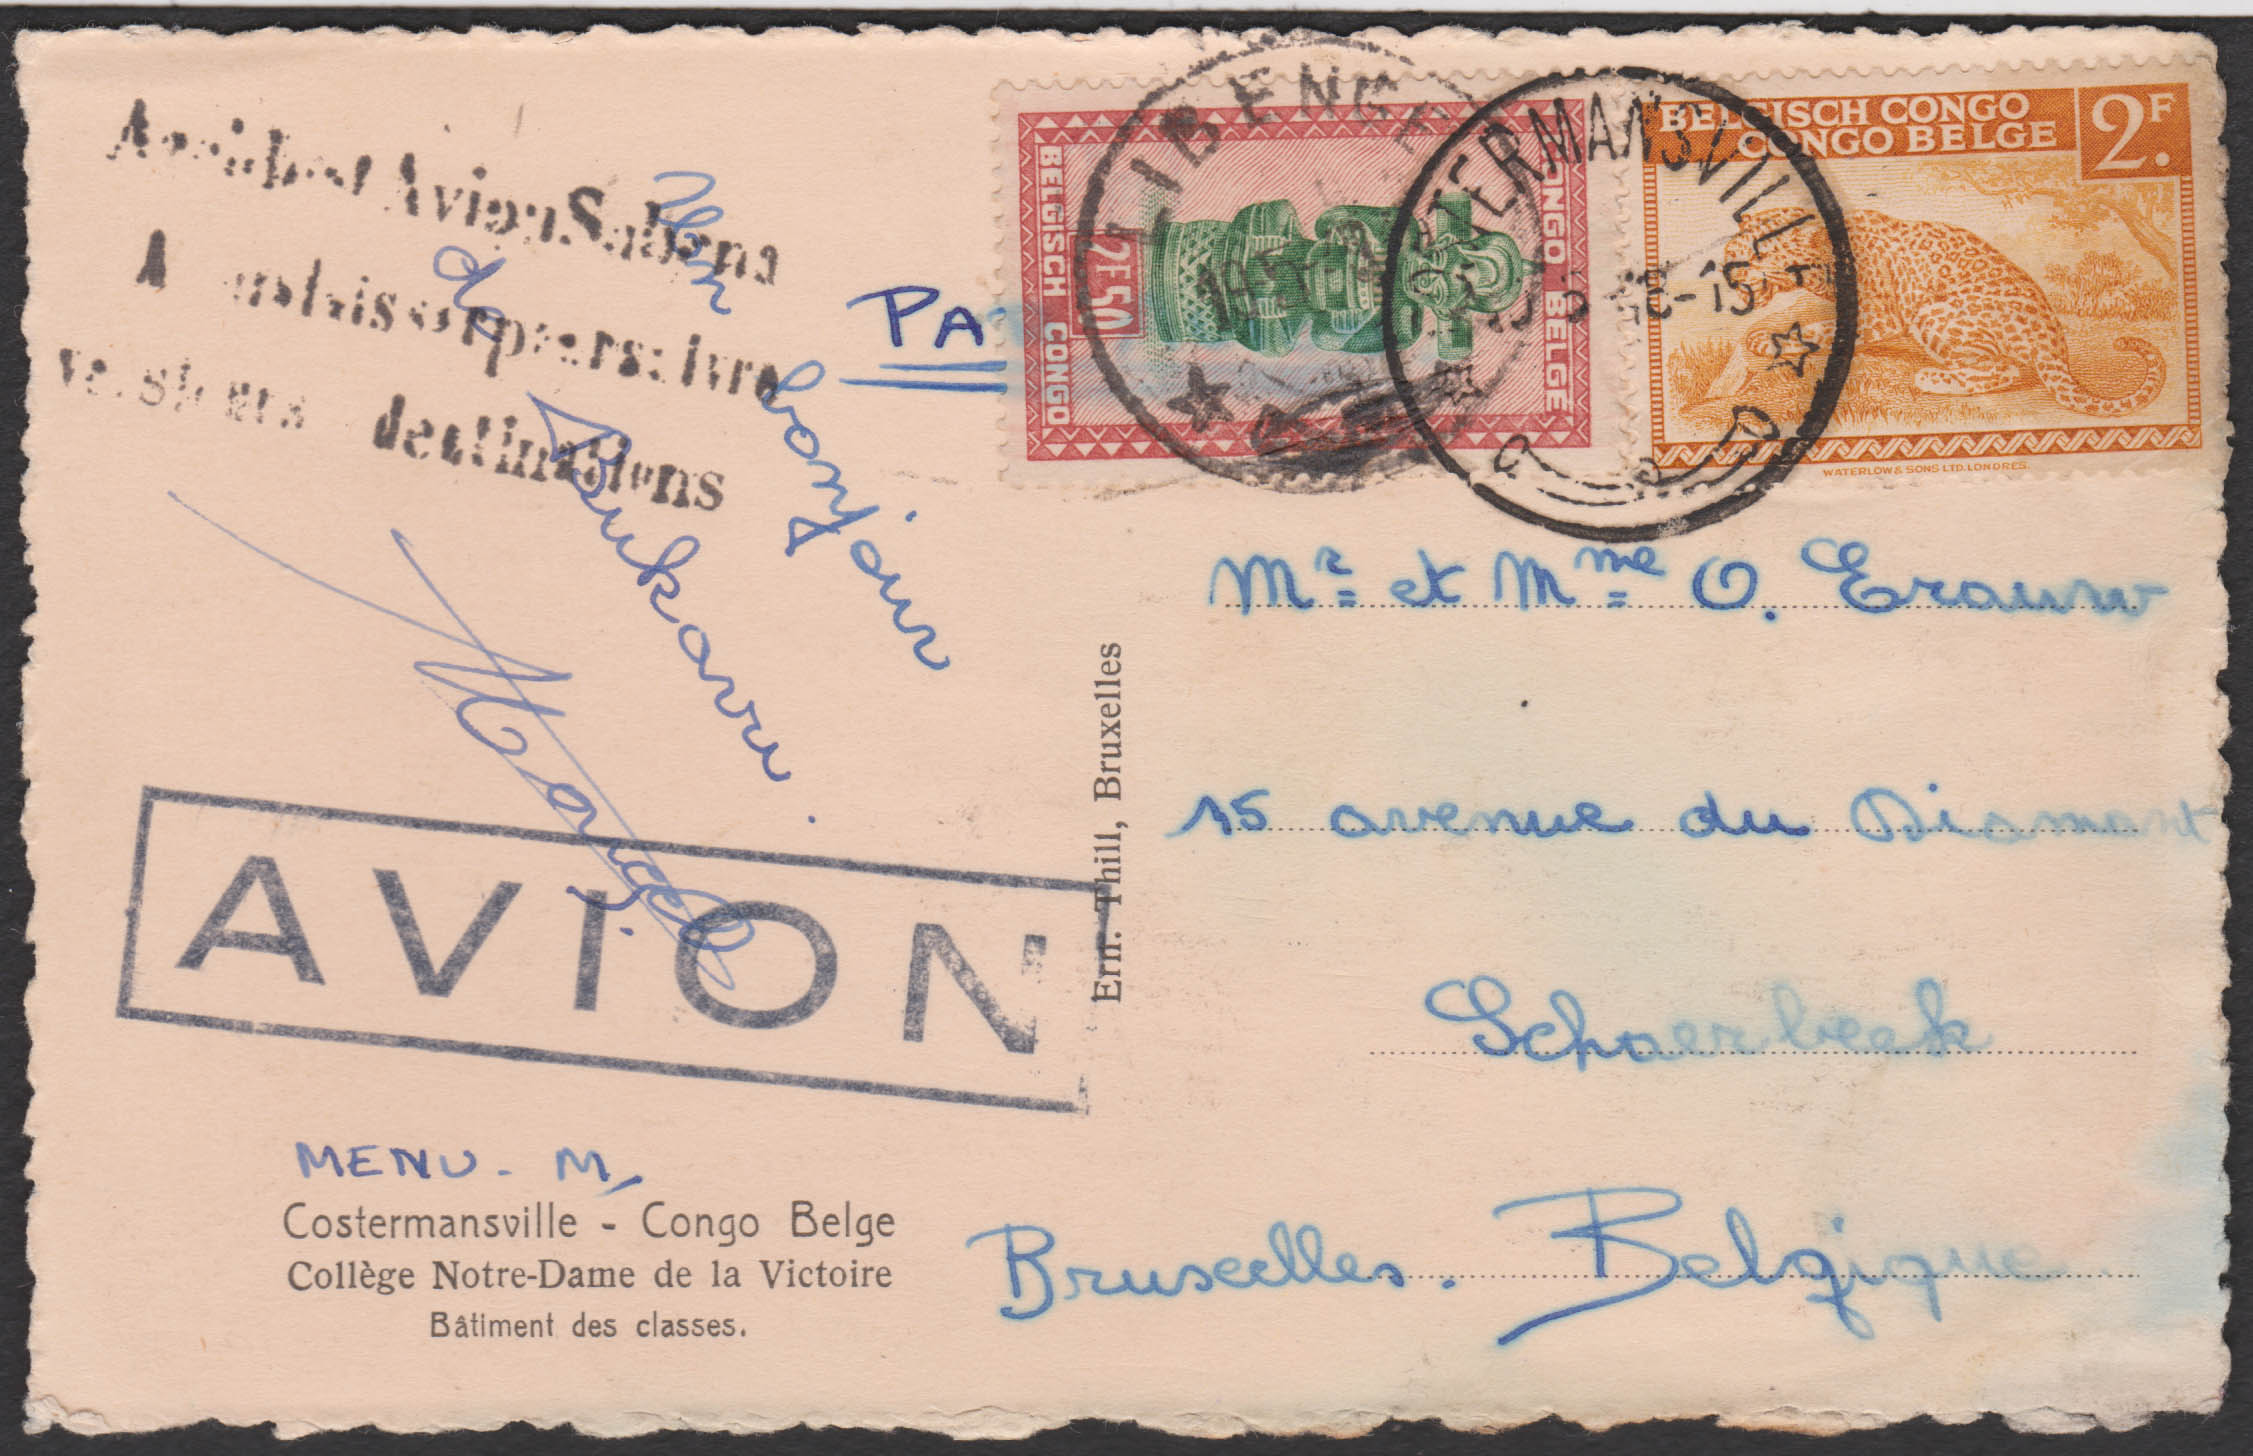 Accident Avion Sabena
vers leurs destinations
Un bonjour
de Bukavu.
PA
LIBENGE
CONGO BELGE
2F50
BELGISCH CONGO
COSTERMANSVILLE
BELGISCH CONGO
CONGO BELGE
2F.
WATERLOW & SONS LTD. LONDRES.
Mr et Mme O. Erauw
15 avenue du Diamant
Schaerbeek
Bruxelles. Belgique
Ern. Thill, Bruxelles
AVION
MENU - M,
Costermansville - Congo Belge
Collège Notre-Dame de la Victoire
Bâtiment des classes.